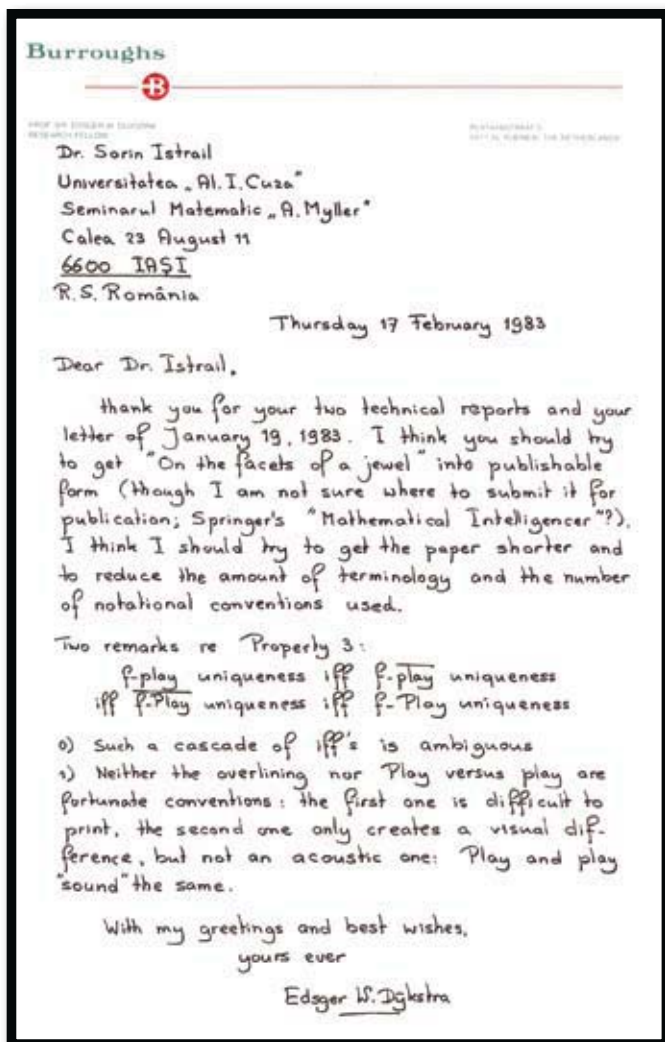 Burroughs
B
PROF. DR. EDSGER W. DIJKSTRA
RESEARCH FELLOW
Dr. Sorin Istrail
Universitatea „Al. I. Cuza"
Seminarul Matematic „A. Myller"
Calea 23 August 11
6600 IAŞI
R.S. România
Thursday 17 February 1983
Dear Dr. Istrail,
thank you for your two technical reports and your
letter of January 19, 1983. I think you should try
to get "On the facets of a jewel" into publishable
form (though I am not sure where to submit it for
publication; Springer's "Mathematical Intelligencer"?).
I think I should try to get the paper shorter and
to reduce the amount of terminology and the number
of notational conventions used.
Two remarks re Property 3:
f-play uniqueness iff f-p̅l̅a̅y̅ uniqueness
iff f̅-̅P̅l̅a̅y̅ uniqueness iff f-Play uniqueness
0) Such a cascade of iff's is ambiguous
1) Neither the overlining nor Play versus play are
fortunate conventions: the first one is difficult to
print, the second one only creates a visual dif-
ference, but not an acoustic one: Play and play
"sound" the same.
With my greetings and best wishes,
yours ever
Edsger W. Dijkstra